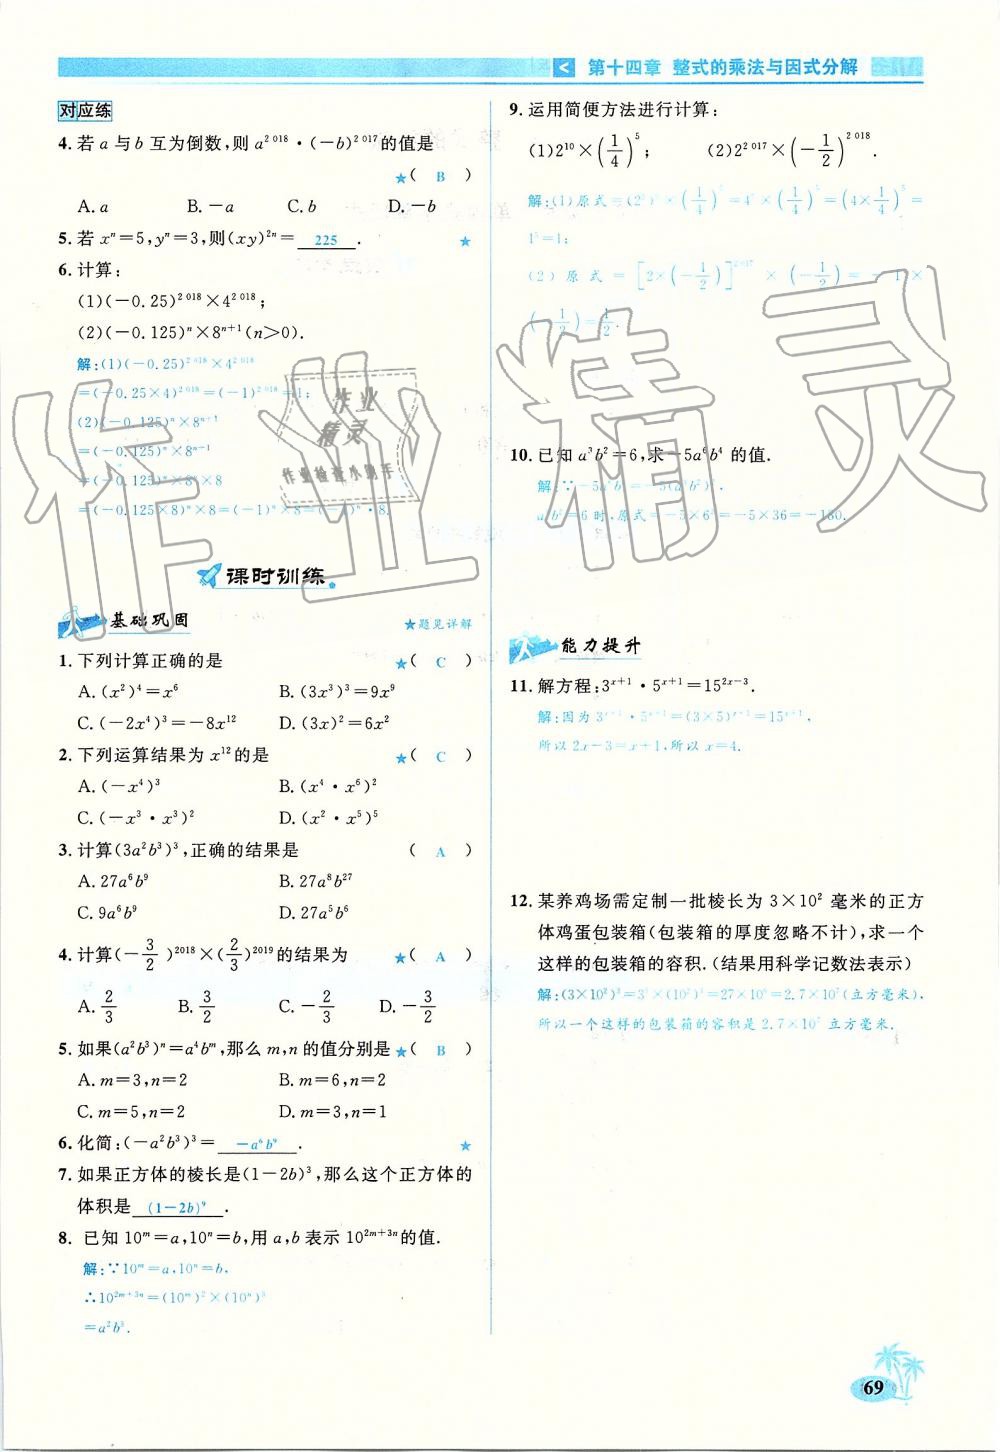 < 第十四章 整式的乘法与因式分解
对应练
4. 若 a 与 b 互为倒数,则 a^{2018}·(-b)^{2017}的值是
★( B )
A. a B. -a C. b D. -b
5. 若 x^n=5,y^n=3,则(xy)^{2n}= 225 . ★
6. 计算:
(1)(-0.25)^{2018}×4^{2018};
(2)(-0.125)^n×8^{n+1}(n>0).
解:(1)(-0.25)^{2018}×4^{2018}
=(-0.25×4)^{2018}=(-1)^{2018}=1;
(2)(-0.125)^n×8^{n+1}
=(-0.125)^n×8^{n+1}
=(-0.125)^n×8^n×8
=(-0.125×8)^n×8=(-1)^n×8=(-1)^n·8.
课时训练
基础巩固 ★题见详解
1. 下列计算正确的是 ★( C )
A. (x^2)^4=x^6 B. (3x^3)^3=9x^9
C. (-2x^4)^3=-8x^{12} D. (3x)^2=6x^2
2. 下列运算结果为 x^{12}的是 ★( C )
A. (-x^4)^3 B. (x^4·x^6)^2
C. (-x^3·x^3)^2 D. (x^2·x^5)^5
3. 计算(3a^2b^3)^3,正确的结果是 ( A )
A. 27a^6b^9 B. 27a^8b^{27}
C. 9a^6b^9 D. 27a^5b^6
4. 计算(-\frac{3}{2})^{2018}×(\frac{2}{3})^{2019}的结果为 ★( A )
A. \frac{2}{3} B. \frac{3}{2} C. -\frac{2}{3} D. -\frac{3}{2}
5. 如果(a^2b^3)^n=a^4b^m,那么 m,n 的值分别是 ★( B )
A. m=3,n=2 B. m=6,n=2
C. m=5,n=2 D. m=3,n=1
6. 化简:(-a^2b^3)^3= -a^6b^9 . ★
7. 如果正方体的棱长是(1-2b)^3,那么这个正方体的
体积是 (1-2b)^9 .
8. 已知 10^m=a,10^n=b,用 a,b 表示 10^{2m+3n}的值.
解:∵10^m=a,10^n=b,
∴10^{2m+3n}=(10^m)^2×(10^n)^3
=a^2b^3.
9. 运用简便方法进行计算:
(1)2^{10}×(\frac{1}{4})^5; (2)2^{2017}×(-\frac{1}{2})^{2018}.
解:(1)原式=(2^2)^5×(\frac{1}{4})^5=4^5×(\frac{1}{4})^5=(4×\frac{1}{4})^5=
1^5=1;
(2)原式=[2×(-\frac{1}{2})]^{2017}×(-\frac{1}{2})=-1×
(-\frac{1}{2})=\frac{1}{2}.
10. 已知 a^3b^2=6,求-5a^6b^4 的值.
解:∵-5a^6b^4=-5(a^3b^2)^2,
a^3b^2=6时,原式=-5×6^2=-5×36=-180.
能力提升
11. 解方程:3^{x+1}·5^{x+1}=15^{2x-3}.
解:因为3^{x+1}·5^{x+1}=(3×5)^{x+1}=15^{x+1},
所以2x-3=x+1,所以x=4.
12. 某养鸡场需定制一批棱长为 3×10^2 毫米的正方
体鸡蛋包装箱(包装箱的厚度忽略不计),求一个
这样的包装箱的容积.(结果用科学记数法表示)
解:(3×10^2)^3=3^3×(10^2)^3=27×10^6=2.7×10^7(立方毫米),
所以一个这样的包装箱的容积是2.7×10^7立方毫米.
作业精灵
作业
精灵
作业检查小助手
69